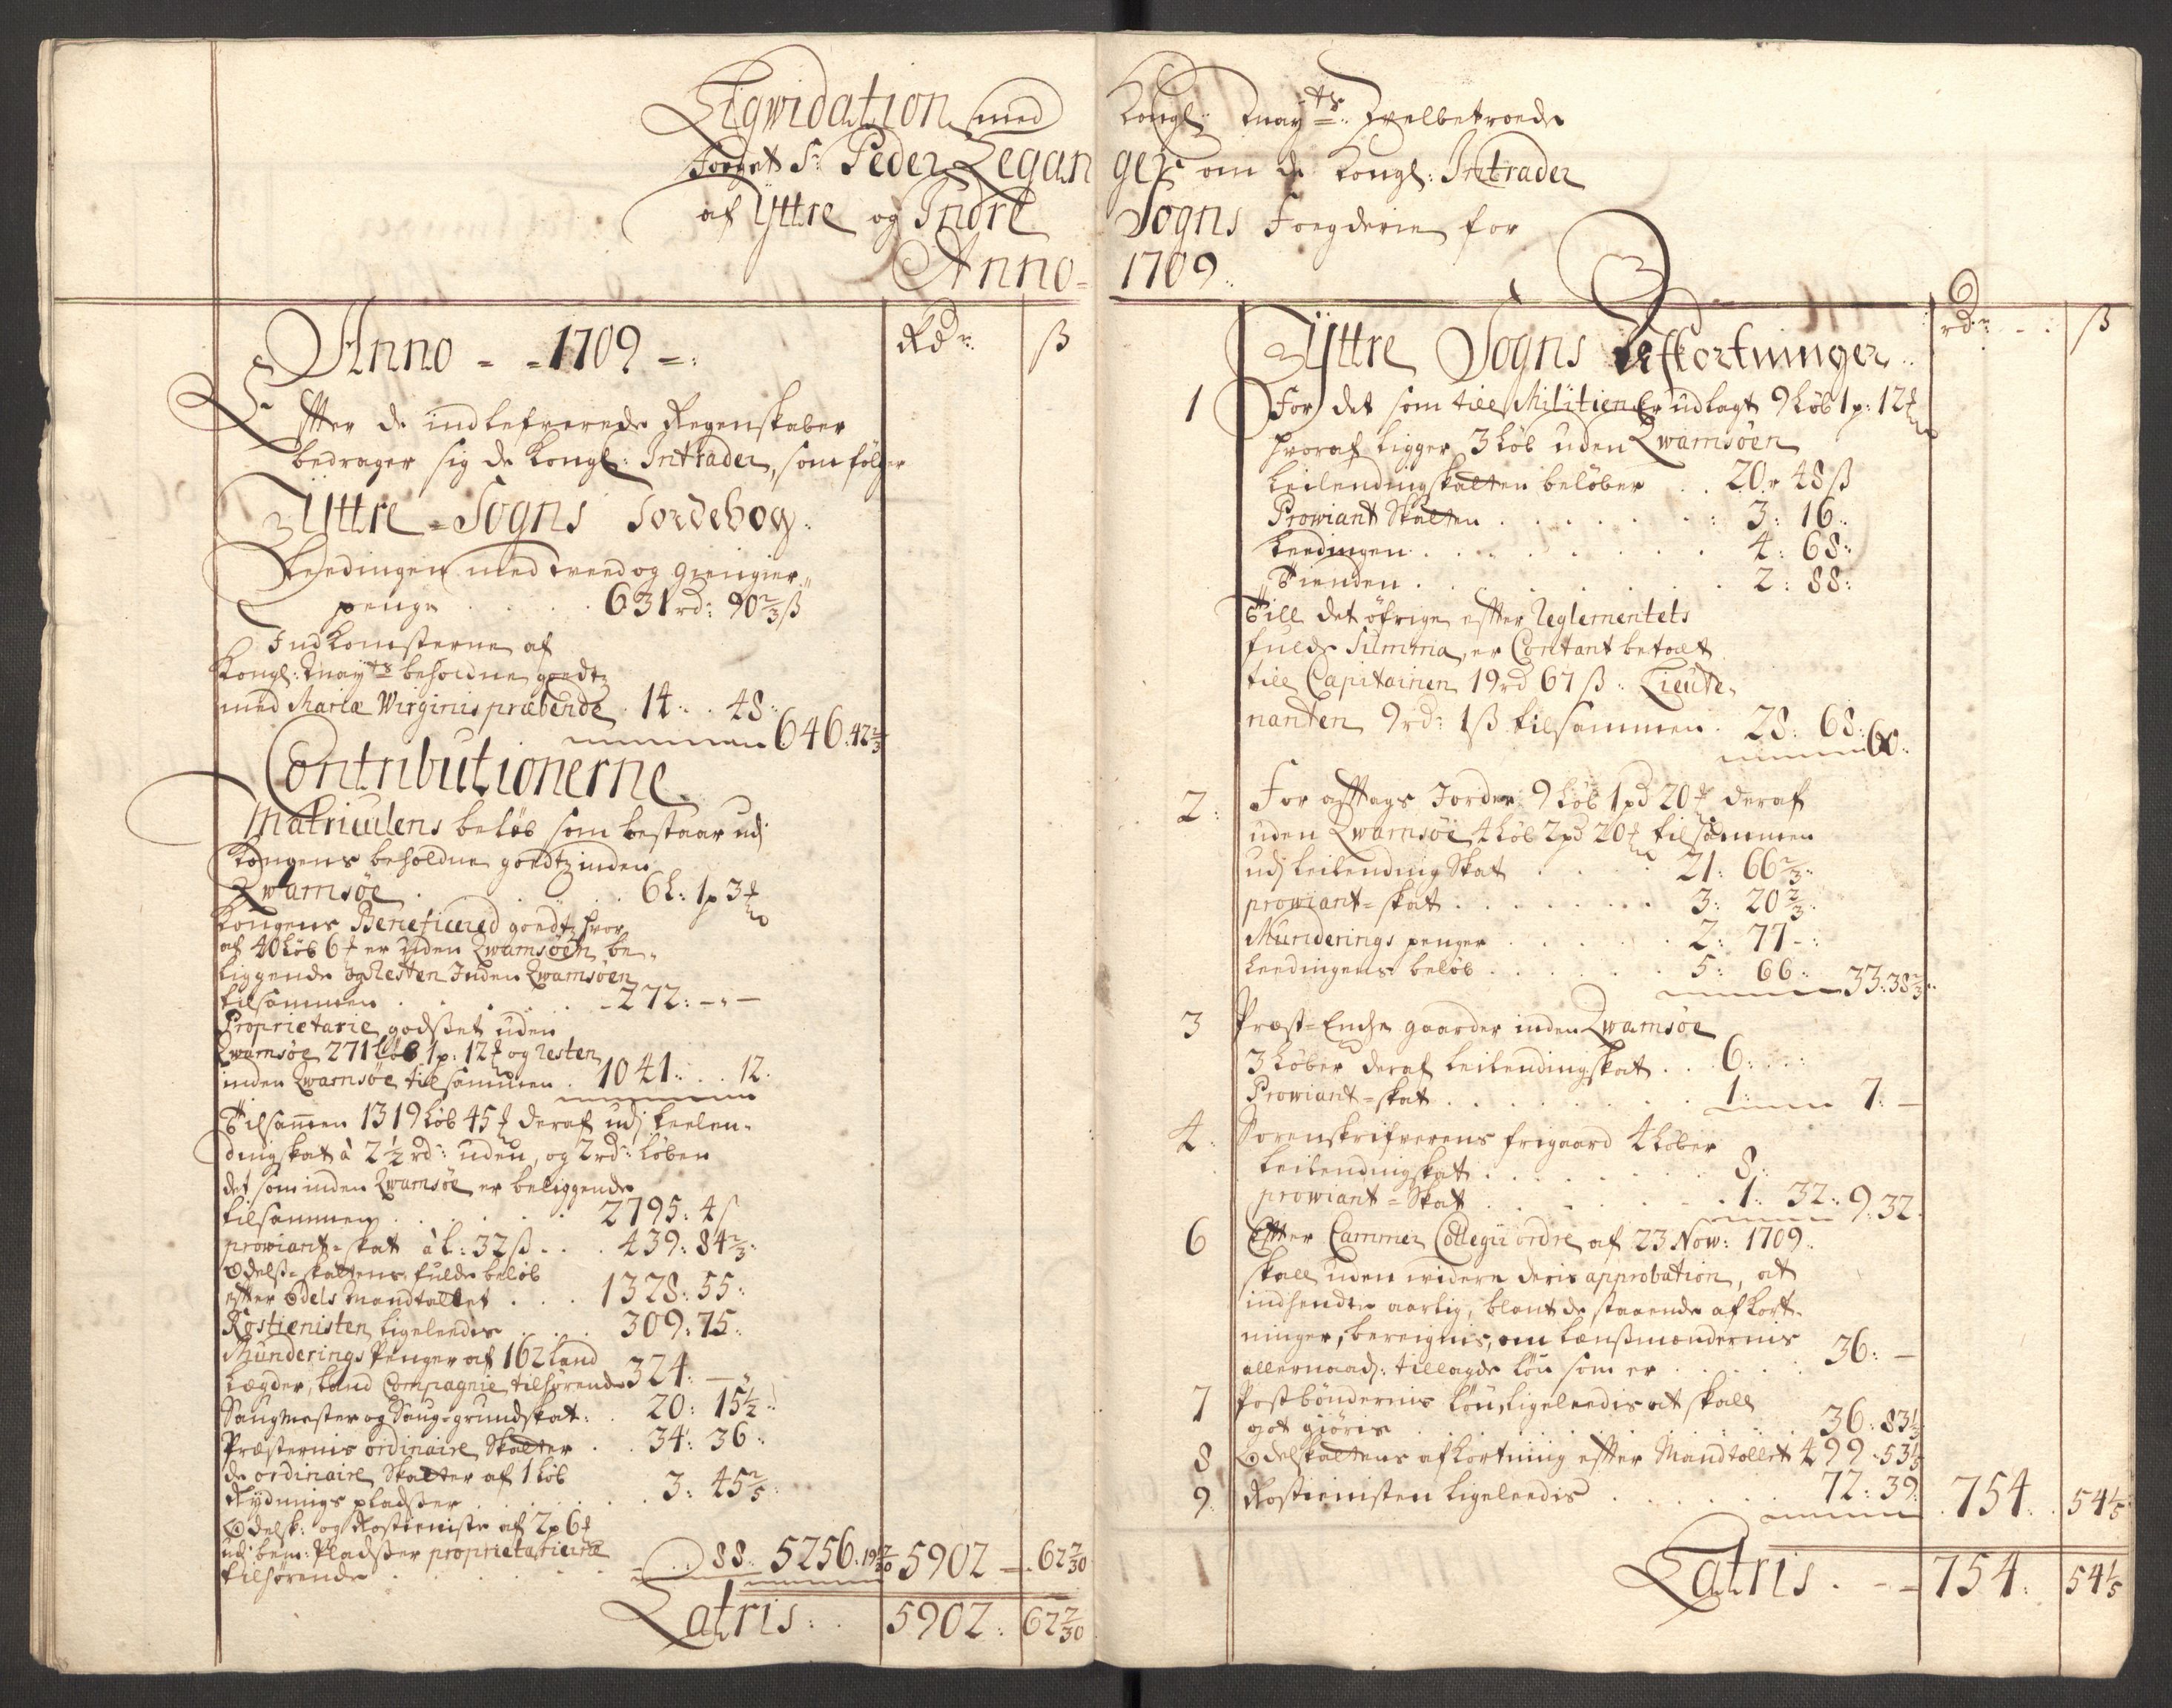 Liqvidation med Kongl: May:ts: Welbetroede
Foget Sr: Peder Legan ger om de Kongl: Intrader
af Yttre og Indre Sogns Fogderie for
Anno- 1709..
Anno - - 1709 -:
Rdr. ß
Effter de indlefrerede Regenskaber
bedrager sig de Kongl: Intrader, som følger
Yttre - Sogns Jordebog.
Leedingen med tved og giengier
penge . . . . 631 rd: 90 2/3 ß
Indkomsterne af
Kongl: May:ts beholdne goedtz
med Mariæ Wirginis præbende . 14: . 48:
646.42 2/3
Contributionerne
Matriculens beløb som bestaar udj
Kongens beholdne goedtz inden
Qwamsøe . . . . 6 L: 1 p 3
Kongens Beneficered goedtz hvor
af 40 Løb 6 er uden Qwamsøen be-
liggende og Resten Inden Qwamsøen
tilsammen . . . . -272: - . -
Proprietarie godset uden
Qwamsøe 271 Løb 1 p: 12 og resten
inden Qwamsøe tilsammen . 1041: . . 12.
Tilsamen 1319 Løb 45 deraf udj Leelen-
dingskat à 2 1/2 rd: uden, og 2 rd: Løben
det som inden Qwamsøe er beliggende
tilsammen . . . . 2795: 4 ß
prowiant-skat à L: 32 ß . . . 439: 84 2/3:
Odelss-skattens fulde beløb
efter Odels Mandtallet . . . 1328: 55:
Rostienisten ligeleedis . . . 309: 75:
Munderings Penger af 162 Land
Lægder, Land Compagnie tilhørende 324: - .
Saugmester og Sauge grundskat: . 20: 15 1/2:
Præsternis ordinaire Skatter . . 34: 36:
de ordinaire Skatter af 1 Løb
Rydnings pladser . . . . 3: 45 2/5:
Odelsk: og Rostieniste af 2 p 6
udj bem: Pladser proprietarierne
tilhørende . . . . 88: 5256. 19 17/30 5902 - . 62 7/30
Latris: . . 5902: 62 7/30
rdr - : ß
Yttre Sogns Afkortninger..
1 For det som till Militien Er udlagt 9 Løb 1 p: 12
hvoraf ligger 3 Løb uden Qwamsøen
Leilendingskatten beløber . . 20 r 48 ß
Prowiant Skatten . . . . 3: 16:
Leedingen . . . . 4: 68:
Tienden . . . . 2: 88:
Till det øfrige effter Reglementets
fulde Summa, er Contant betalt
till Capitainen 19 rd 67 ß: Lieute-
nanten 9 rd: 1 ß tilsammen . 28: 68:
60:
2: For afftags Jorder 9 Løb 1 pd 20 deraf
uden Qwamsøe 4 Løb 2 pd 20 tilsammen
udj Leilending Skat . . . . 21: 66 2/3:
prowiant-skat . . . . 3: 20 2/3:
Munderings penger . . . . 2: 77 -:
Leedingens beløb . . . . 5: 66: 33: 38 2/3:
3 Præst-Enche gaarder inden Qwamsøe
3 Løber deraf Leilendingskat . . . 6: . . :
Prowiant-skat . . . . 1: 7: -
4: Sorenskrifverens frigaard 4 Løber
Leilendingskat . . . . 8:
prowiant-Skat . . . . 1: 32: 9: 32.
6 Effter Cammer Collegii ordre af 23 Now: 1709.
skall uden widere deris approbation, at
indhendte aarlig, blant de staaende afkort-
ninger, bereignis, om Lænsmændernis
allernaad: tillagde Løn som er . . . . 36: -
7 Postbøndernis Løn, ligeleedis at skall
got giøris . . . . 36: 83 1/3
8 Odelskattens afkortning effter Mandtallet 499 - 53 1/5
9. Rostienisten ligeleedis . . . . 72: 39: 754: . 54 1/5
Latris . - - 754: 54 1/5